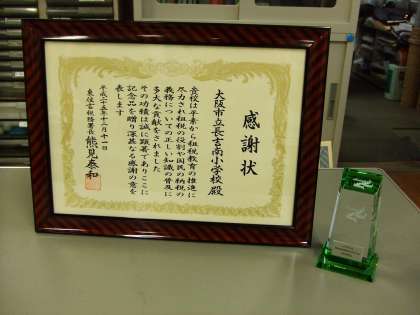 感謝状
大阪市立長吉南小学校 殿
貴校は平素から租税教育の推進に
尽力され租税の役割や国民の納税の
義務についての正しい知識の普及に
多大な貢献をされました
その功績は誠に顕著でありここに
記念品を贈り深甚なる感謝の意を
表します
平成二十五年十一月十一日
東住吉税務署長 熊見泰和